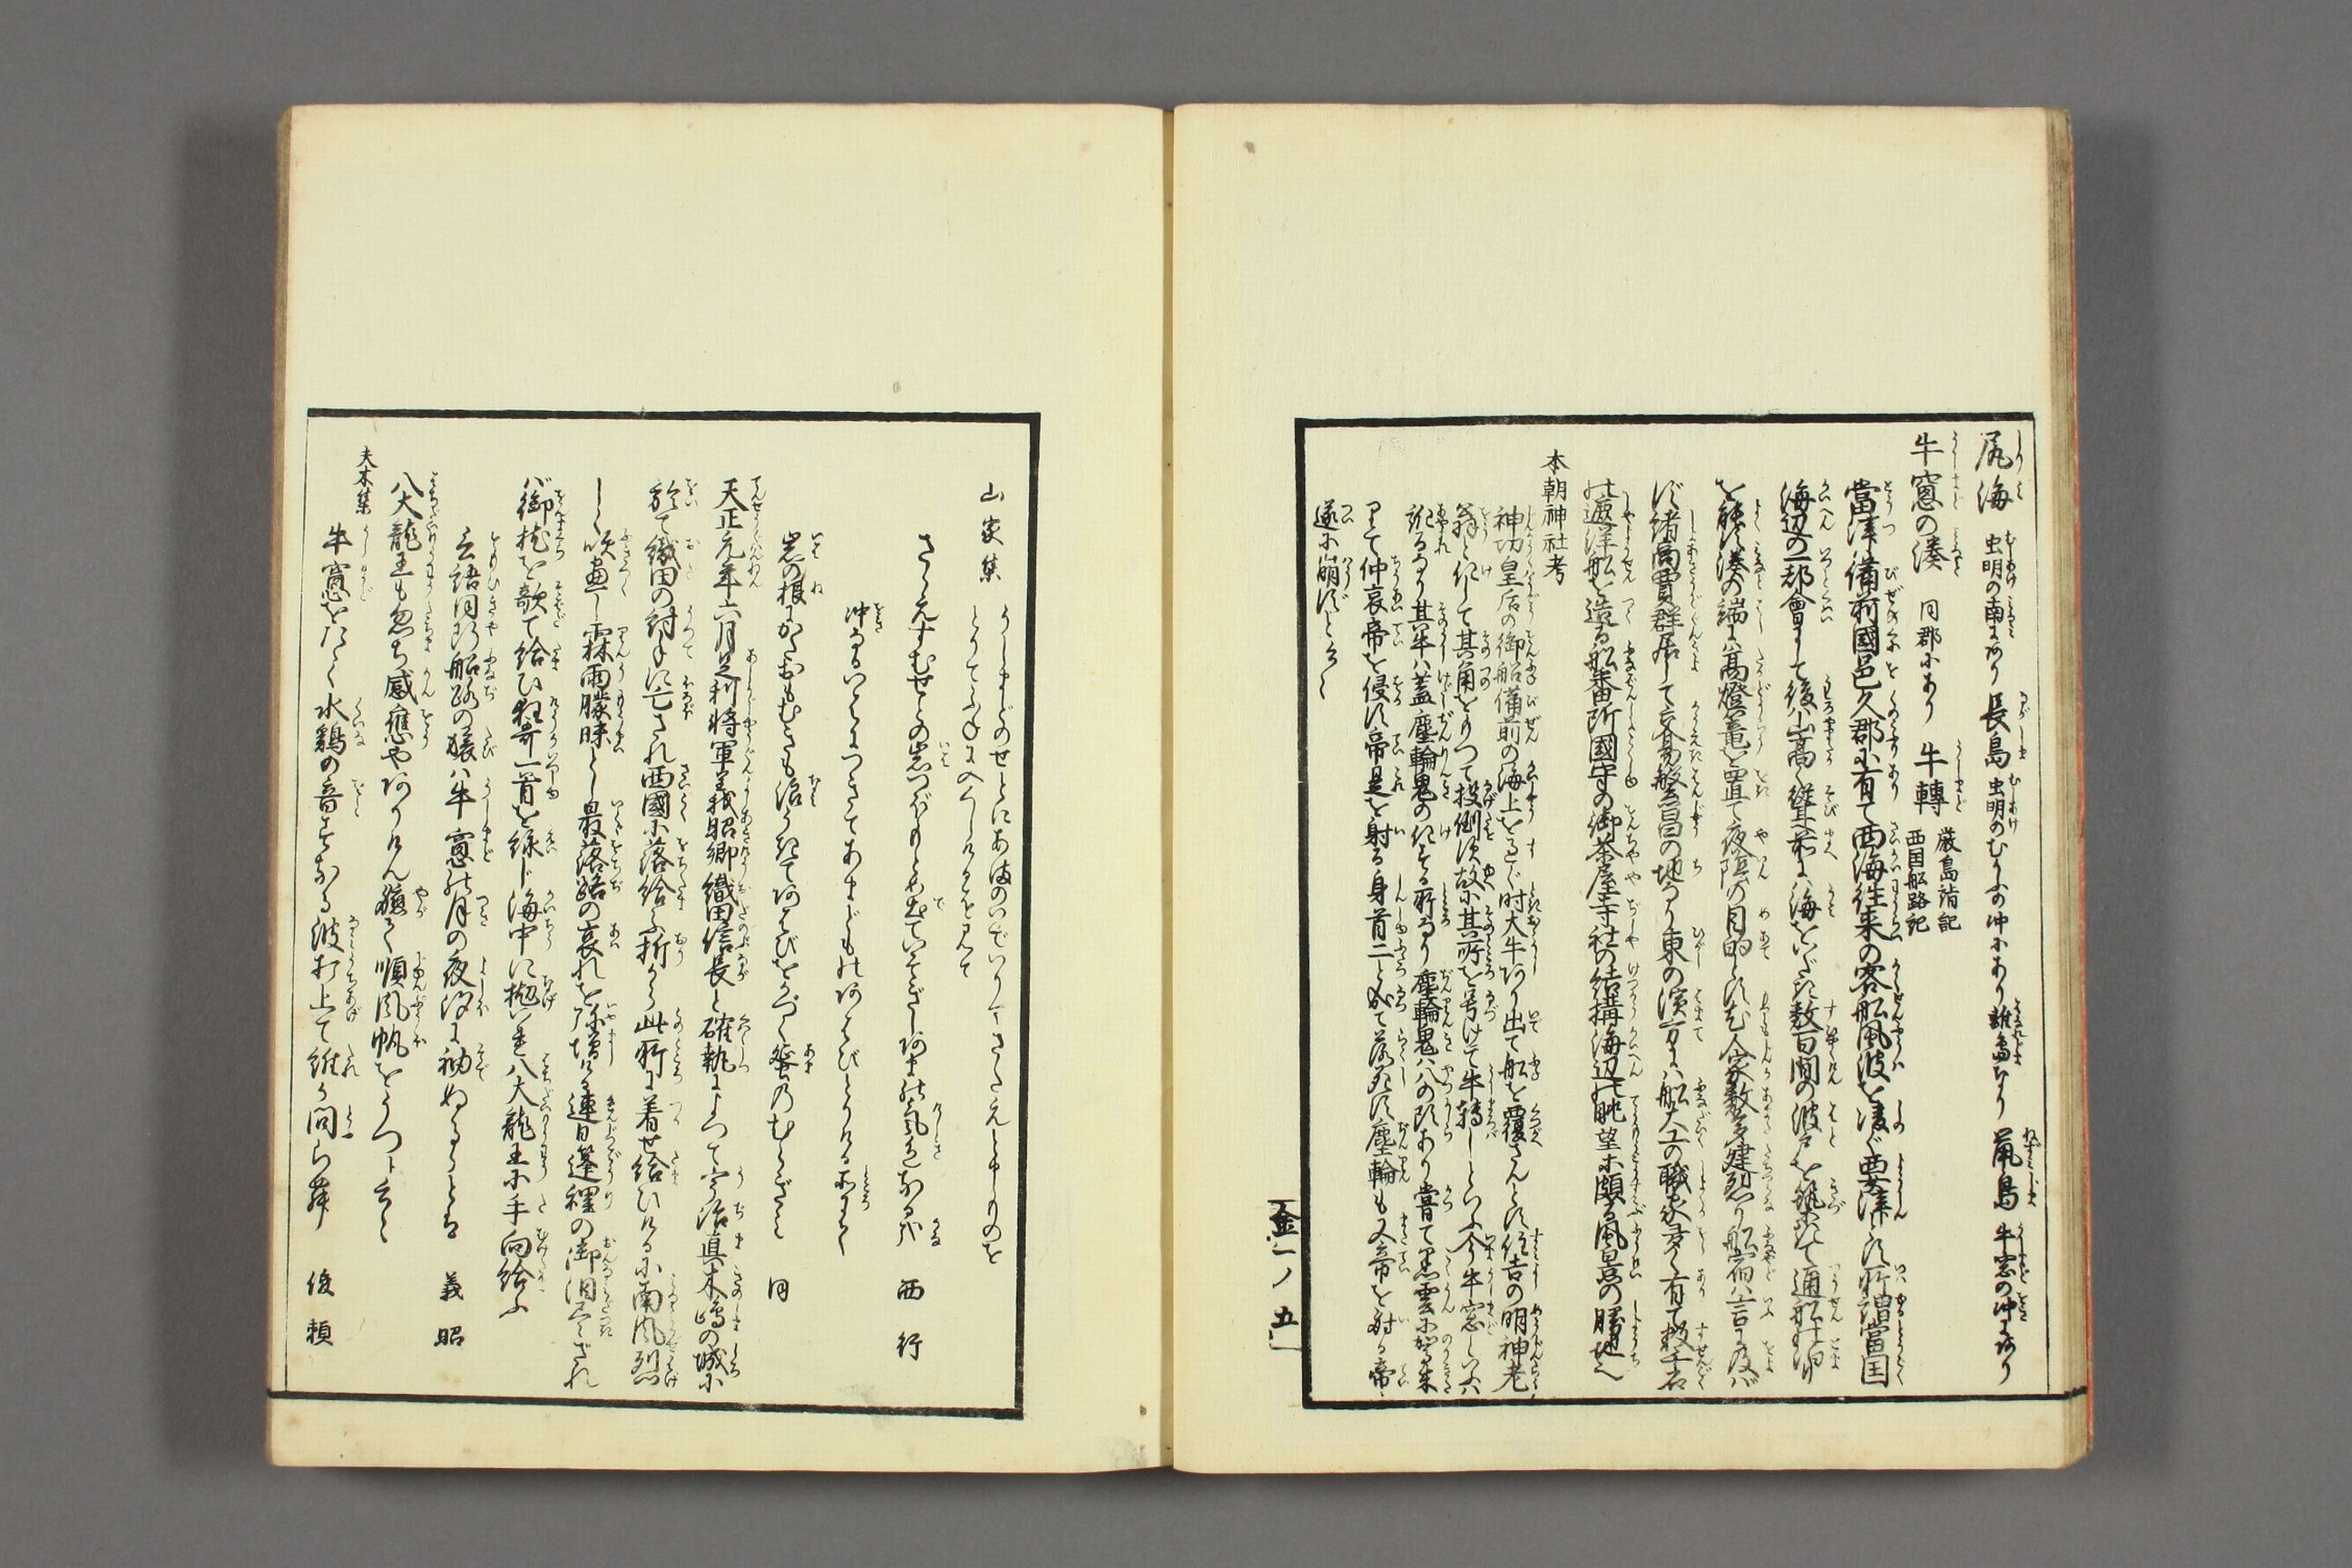 尻海 虫明の南にあり 長島 虫明のむかふの沖にあり 離島なり 鼠島 牛窓の沖にあり
牛窓の湊 同郡にあり 牛轉 厳島詣記 西国船路記
當津ハ備前國邑久郡に有て西海往来の客船風波を凌ぐ要津とす所謂當国
海辺の一都會にして後ハ山高く聳へ前に海をいだき数百間の波戸を築きて通船の泊り
を能す湊の端にハ高燈篭を置て夜陰の目的とす尤人家数多建烈り船宿ハ言に及バ
ず諸商賈群居して交易繁昌の地なり東の濱方にハ船大工の職家多く有て数千石
の渡洋船を造る船番所國守の御茶屋寺社の結構海辺の眺望に頗る風景の勝地也
本朝神社考
神功皇后の御船備前の海上を過ぐ时大牛あり出て船を覆さんとす住吉の明神老
翁と化して其角をもつて投倒す故に其所を号けて牛轉しといふ今牛窓といふハ
訛るなり其牛ハ蓋塵輪鬼の化する所なり塵輪鬼ハ八の頭あり嘗て黒雲に駕し来
りて仲哀帝を侵す帝是を射る身首二と成て落死す塵輪も又帝を射る帝
遂に崩ずと云々
金一ノ五
山家集
うしまどのせとにあまのいでいりてさだえと申ものを
とりてふねに入〳〵しけるを見て
さだえすむせとの岩つぼもとめ出ていそぎしあまの気色なるかな 西行
沖なるいはにつきてあまどものあはびとりける所にて
岩の根にかたおもむきも浪うきてあはびをかづく蜑のむらぎみ 同
天正元年六月足利将軍義昭卿織田信長と確執によつて宇治真木嶋の城に
於て織田の討手に亡され西國に落給ふ折から此所に着せ給ひけるに南風烈
しく吹畫し霖雨朦昧とし最落路の哀れを弥増ける連日蓬裡の御泪尽ざれ
バ御枕を欹て給ひ狂哥一首を綴じ海中に抛いれ八大龍王に手向給ふ
言語同断船路の旅ハ牛窓の月の夜汐に袖ぬるゝとは 義昭
八大龍王も忽ち感應やありけん軈て順風帆をうつと云々
夫木集
牛窓をたゝく水鶏の音すなる波打上て誰か問らむ 俊頼